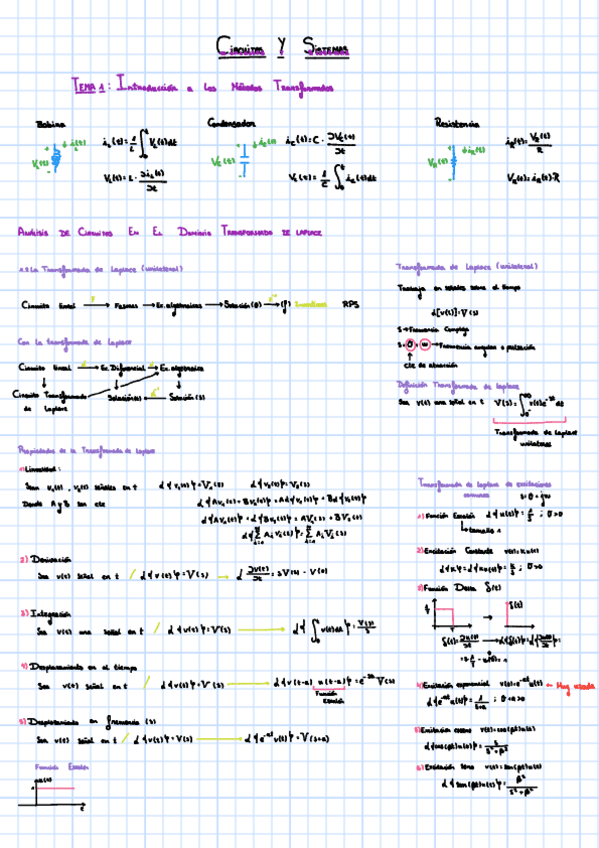 CIRCUITOS Y SISTEMAS
TEMA 1: Introducción a los Métodos Transformados
Bobina
V_L(t) i_L(t)
i_L(t)=1/L ∫_0^t V_L(t)dt
V_L(t)=L·∂i_L(t)/∂t
Condensador
V_C(t) i_C(t)
i_C(t)=C·∂V_C(t)/∂t
V_C(t)=1/C ∫_0^t i_C(t)dt
Resistencia
V_R(t) i_R(t)
i_R(t)=V_R(t)/R
V_R(t)=i_R(t)·R
ANÁLISIS DE CIRCUITOS EN EL DOMINIO TRANSFORMADO DE LAPLACE
La Transformada de Laplace (unilateral)
Circuito lineal → Fasores → Ec. algebraicas → Solución
RPS
Con la transformada de Laplace
Circuito lineal → Ec. Diferencial → Ec. algebraica
Circuito Transformado de Laplace
Solución(t) Solución(s)
Transformada de Laplace (unilateral)
Trabaja en señales sobre el tiempo
ℒ[v(t)]=V(s)
s→Frecuencia Compleja
→Frecuencia angular o pulsación
cte de atenuación
Definición Transformada de Laplace
Sea v(t) una señal en t V(s)=∫_{0^-}^∞ v(t)e^{-st}dt
Transformada de Laplace unilateral
Propiedades de la Transformada de Laplace
1) Linealidad:
Sean v_1(t), v_2(t) señales en t
Donde A y B son cte
2) Derivación
Sea v(t) señal en t / ℒ{v(t)}=V(s) → ℒ ∂v(t)/∂t = sV(s) - V(0)
3) Integración
Sea v(t) una señal en t / ℒ{v(t)}=V(s) → ℒ{∫_0^t v(t)dt}=V(s)/s
4) Desplazamiento en el tiempo
Sea v(t) señal en t / ℒ{v(t)}=V(s) → ℒ{v(t-a) u(t-a)}=e^{-as}V(s)
Función Escalón
5) Desplazamiento en frecuencia (s)
Sea v(t) señal en t / ℒ{v(t)}=V(s) → ℒ{e^{-at}v(t)}=V(s+a)
Función Escalón
u(t)
1
t
Transformada de Laplace de excitaciones comunes
s=σ+jω
1) Función Escalón ℒ{u(t)}=1/s ; σ>0
tamaño 1
2) Excitación Constante v(t)=K u(t)
ℒ{K}=ℒ{K u(t)}=K/s ; σ>0
3) Función Delta δ(t)
δ(t)
4) Excitación exponencial v(t)=e^{-at}u(t) ← Muy usada
ℒ{e^{-at}u(t)}=1/(s+a) ; σ+a>0
5) Excitación coseno v(t)=cos(βt)u(t)
ℒ{cos(βt)u(t)}=s/(s²+β²)
6) Excitación seno v(t)=sen(βt)u(t)
ℒ{sen(βt)u(t)}=β²/(s²+β²)